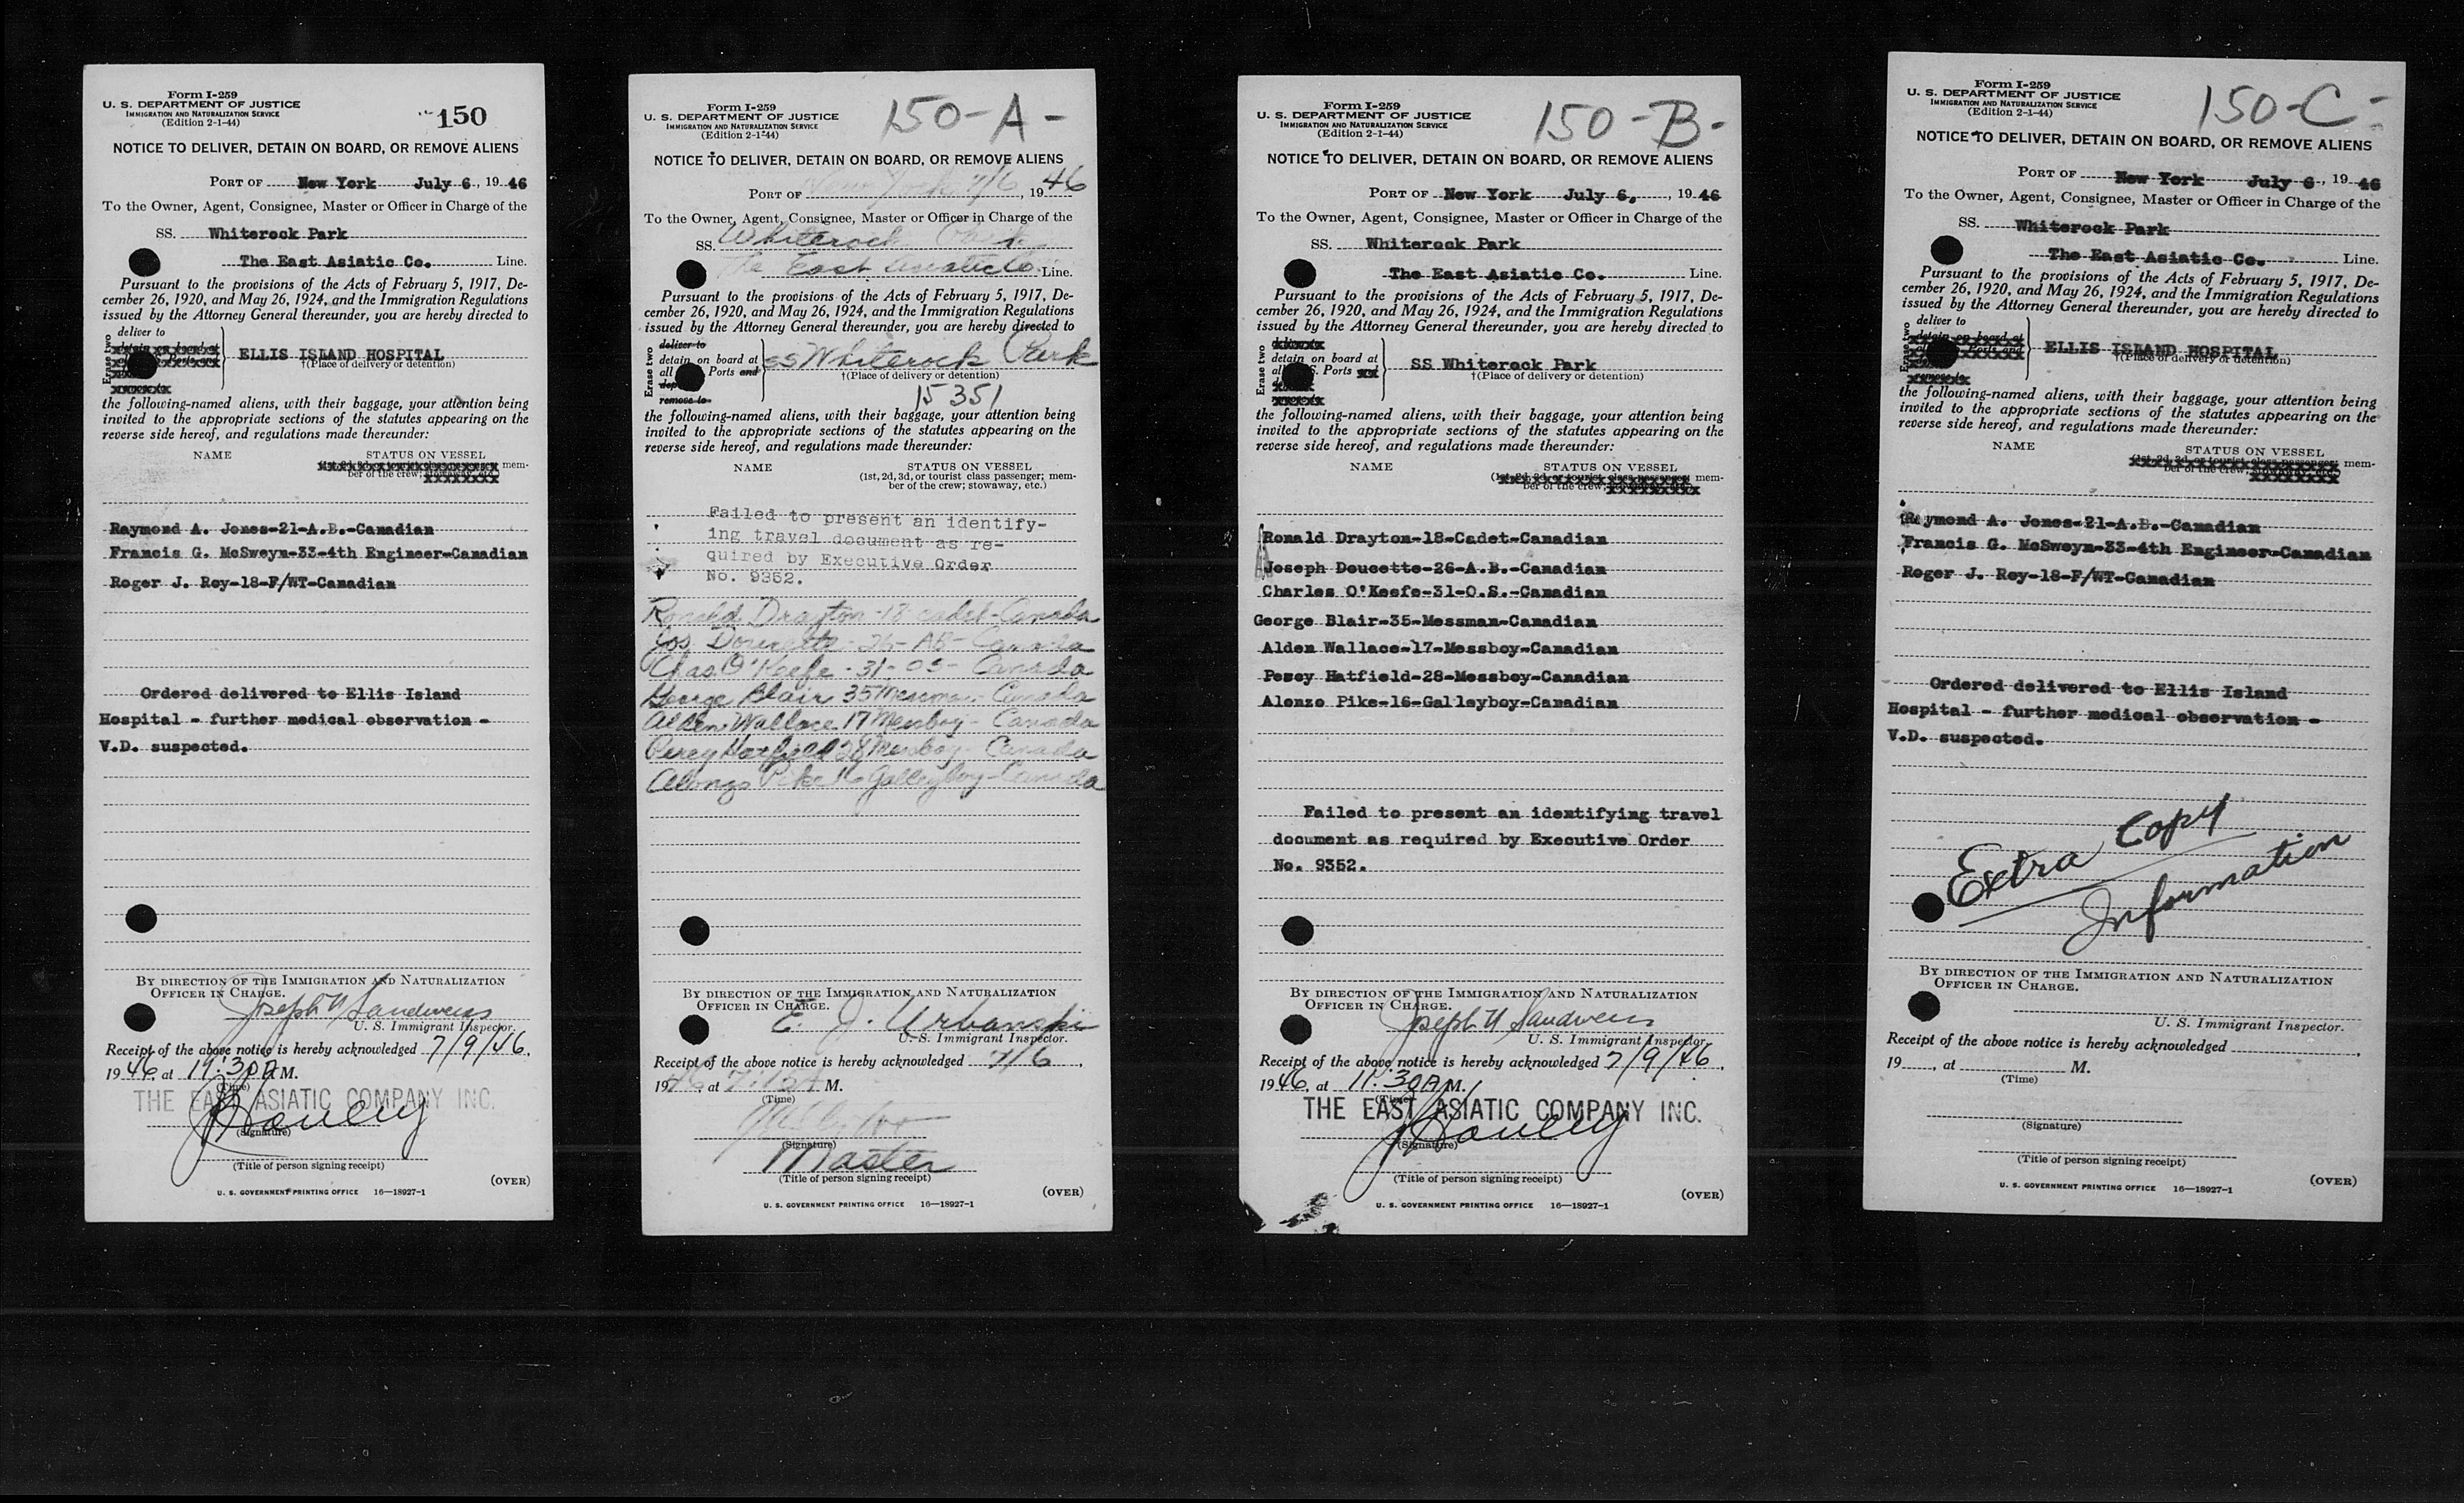 Form I-259
U. S. DEPARTMENT OF JUSTICE
IMMIGRATION AND NATURALIZATION SERVICE
(Edition 2-1-44)
150
NOTICE TO DELIVER, DETAIN ON BOARD, OR REMOVE ALIENS
PORT OF New York July 6, 1946
To the Owner, Agent, Consignee, Master or Officer in Charge of the
SS. Whiterock Park
The East Asiatic Co. Line.
Pursuant to the provisions of the Acts of February 5, 1917, De-
cember 26, 1920, and May 26, 1924, and the Immigration Regulations
issued by the Attorney General thereunder, you are hereby directed to
Erase two
deliver to
ELLIS ISLAND HOSPITAL
†(Place of delivery or detention)
the following-named aliens, with their baggage, your attention being
invited to the appropriate sections of the statutes appearing on the
reverse side hereof, and regulations made thereunder:
NAME STATUS ON VESSEL
mem-
ber of the crew;
Raymond A. Jones-21-A.B.-Canadian
Francis G. McSweyn-33-4th Engineer-Canadian
Roger J. Roy-18-F/WT-Canadian
Ordered delivered to Ellis Island
Hospital - further medical observation -
V.D. suspected.
BY DIRECTION OF THE IMMIGRATION AND NATURALIZATION
OFFICER IN CHARGE.
Joseph Sandweiss
U. S. Immigrant Inspector.
Receipt of the above notice is hereby acknowledged 7/9/46.
1946, at 11:30 A M.
(Time)
THE EAST ASIATIC COMPANY INC.
(Signature)
(Title of person signing receipt)
(OVER)
U. S. GOVERNMENT PRINTING OFFICE 16—18927-1
Form I-259
U. S. DEPARTMENT OF JUSTICE
IMMIGRATION AND NATURALIZATION SERVICE
(Edition 2-1-44)
150-A-
NOTICE TO DELIVER, DETAIN ON BOARD, OR REMOVE ALIENS
PORT OF New York 7/6, 1946
To the Owner, Agent, Consignee, Master or Officer in Charge of the
SS. Whiterock Park
The East Asiatic Co. Line.
Pursuant to the provisions of the Acts of February 5, 1917, De-
cember 26, 1920, and May 26, 1924, and the Immigration Regulations
issued by the Attorney General thereunder, you are hereby directed to
Erase two
deliver to
detain on board at
all Ports and
remove to
SS Whiterock Park
†(Place of delivery or detention)
15351
the following-named aliens, with their baggage, your attention being
invited to the appropriate sections of the statutes appearing on the
reverse side hereof, and regulations made thereunder:
NAME STATUS ON VESSEL
(1st, 2d, 3d, or tourist class passenger; mem-
ber of the crew; stowaway, etc.)
Failed to present an identify-
ing travel document as re-
quired by Executive Order
No. 9352.
Ronald Drayton-18 cadet-Canada
Jos Doucette-26-AB-Canada
Chas. O'Keefe-31-OS-Canada
George Blair 35 Messman-Canada
Alden Wallace 17 Messboy-Canada
Percy Hatfield 28 Messboy-Canada
Alonzo Pike 16 Galleyboy-Canada
BY DIRECTION OF THE IMMIGRATION AND NATURALIZATION
OFFICER IN CHARGE.
E. J. Urbanski
U. S. Immigrant Inspector.
Receipt of the above notice is hereby acknowledged 7/6,
1946 at 7:15A M.
(Time)
(Signature)
Master
(Title of person signing receipt)
(OVER)
U. S. GOVERNMENT PRINTING OFFICE 16—18927-1
Form I-259
U. S. DEPARTMENT OF JUSTICE
IMMIGRATION AND NATURALIZATION SERVICE
(Edition 2-1-44)
150-B-
NOTICE TO DELIVER, DETAIN ON BOARD, OR REMOVE ALIENS
PORT OF New York July 6, , 1946
To the Owner, Agent, Consignee, Master or Officer in Charge of the
SS. Whiterock Park
The East Asiatic Co. Line.
Pursuant to the provisions of the Acts of February 5, 1917, De-
cember 26, 1920, and May 26, 1924, and the Immigration Regulations
issued by the Attorney General thereunder, you are hereby directed to
Erase two
detain on board at
all S. Ports
SS Whiterock Park
†(Place of delivery or detention)
the following-named aliens, with their baggage, your attention being
invited to the appropriate sections of the statutes appearing on the
reverse side hereof, and regulations made thereunder:
NAME STATUS ON VESSEL
mem-
ber of the crew;
Ronald Drayton-18-Cadet-Canadian
Joseph Doucette-26-A.B.-Canadian
Charles O'Keefe-31-O.S.-Canadian
George Blair-35-Messman-Canadian
Alden Wallace-17-Messboy-Canadian
Pescy Hatfield-28-Messboy-Canadian
Alonzo Pike-16-Galleyboy-Canadian
Failed to present an identifying travel
document as required by Executive Order
No. 9352.
BY DIRECTION OF THE IMMIGRATION AND NATURALIZATION
OFFICER IN CHARGE.
Joseph Sandweiss
U. S. Immigrant Inspector.
Receipt of the above notice is hereby acknowledged 7/9/46.
1946, at 11:30 A M.
(Time)
THE EAST ASIATIC COMPANY INC.
(Signature)
(Title of person signing receipt)
(OVER)
U. S. GOVERNMENT PRINTING OFFICE 16—18927-1
Form I-259
U. S. DEPARTMENT OF JUSTICE
IMMIGRATION AND NATURALIZATION SERVICE
(Edition 2-1-44)
150-C-
NOTICE TO DELIVER, DETAIN ON BOARD, OR REMOVE ALIENS
PORT OF New York July 6, 1946
To the Owner, Agent, Consignee, Master or Officer in Charge of the
SS. Whiterock Park
The East Asiatic Co. Line.
Pursuant to the provisions of the Acts of February 5, 1917, De-
cember 26, 1920, and May 26, 1924, and the Immigration Regulations
issued by the Attorney General thereunder, you are hereby directed to
Erase two
deliver to
ELLIS ISLAND HOSPITAL
†(Place of delivery or detention)
the following-named aliens, with their baggage, your attention being
invited to the appropriate sections of the statutes appearing on the
reverse side hereof, and regulations made thereunder:
NAME STATUS ON VESSEL
mem-
ber of the crew;
Raymond A. Jones-21-A.B.-Canadian
Francis G. McSweyn-33-4th Engineer-Canadian
Roger J. Roy-18-F/WT-Canadian
Ordered delivered to Ellis Island
Hospital - further medical observation -
V.D. suspected.
Extra Copy
Information
BY DIRECTION OF THE IMMIGRATION AND NATURALIZATION
OFFICER IN CHARGE.
U. S. Immigrant Inspector.
Receipt of the above notice is hereby acknowledged
19 , at M.
(Time)
(Signature)
(Title of person signing receipt)
(OVER)
U. S. GOVERNMENT PRINTING OFFICE 16—18927-1